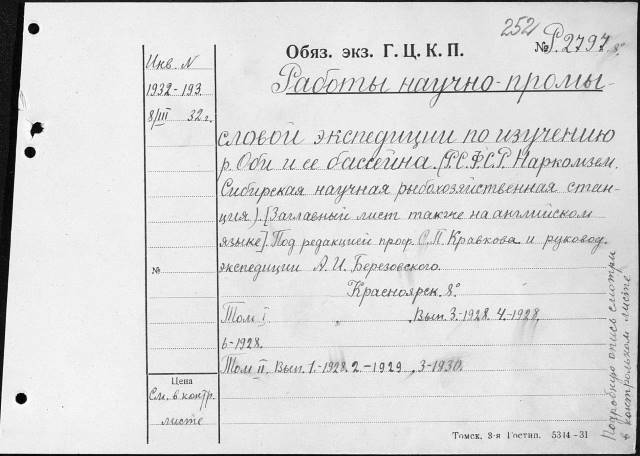 252
Обяз. экз. Г. Ц. К. П.
№ Р. 2797. 8°
Инв. N
1932-193.
8/III 32 г.
Работы научно-промы-
словой экспедиции по изучению
р. Оби и ее бассейна. (Р.С.Ф.С.Р. Наркомзем.
Сибирская научная рыбохозяйственная стан-
ция). [Заглавный лист также на английском
языке]. Под редакцией проф. С.П. Кравкова и руковод.
экспедиции А. И. Березовского.
№
Красноярск. 8°
Том I. " Вып. 3.-1928. 4.-1928,
6-1928.
Том II. Вып. 1.-1928. 2.-1929, 3-1930.
Цена
См. в контр.
листе
Подробную опись смотри
в контрольном листе
Томск. 3-я Гостип. 5314-31